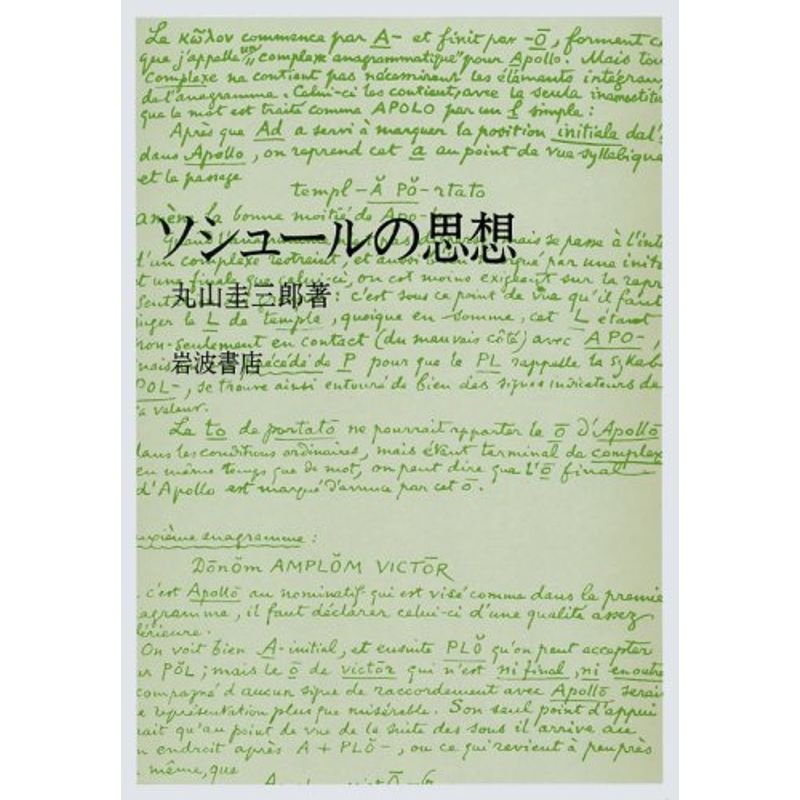 Le κῶλον commence par A- et finit par -Ō, forment c
que j'appelle un "complexe anagrammatique" pour Apollo. Mais tou
complexe ne contient pas nécessairemt les éléments intégrau
de l'anagramme. Celui-ci les contient, avec la seule inexactitu
que le mot est traité comme APOLO par un l simple :
Après que Ad a servi à marquer la position initiale de l'a
dans Apollo, on reprend cet a au point de vue syllabique
et le passage
templ-Ă PŎ-rtato
amène la bonne moitié de Apo-
ソシュールの思想
se passe à l'inté
d'un complexe restreint, et aussi par une inita
et une finale que celui-ci, on est moins exigeant sur la repr
丸山圭三郎著
: c'est sous ce point de vue qu'il faut
juger le L de templa, quoique en somme, cet L étant
non-seulement en contact (du mauvais côté) avec APO-,
岩波書店
mais précédé de P pour que le PL rappelle la syllab
POL-, se trouve ainsi entouré de bien des signes indicateurs de
sa valeur.
Le to de portatō ne pourrait apporter le ō d'Apollō
dans les conditions ordinaires, mais étant terminal de complexe
en même temps que de mot, on peut dire que l'ō final
d'Apollo est marqué d'avance par cet ō.
uxième anagramme :
Dōnŏm AMPLŎM VICTŌR
c'est Apollō au nominatif qui est visé comme dans le premie
agramme, il faut déclarer celui-ci d'une qualité assez
érieure.
On voit bien A-initial, et ensuite PLŎ qu'on peut accepter
ur PŎL ; mais le ō de victōr qui n'est ni final, ni en outre
compagné d'aucun signe de raccordement avec Apollō serai
e représentation plus que misérable. Son seul point d'appui
rait qu'au point de vue de la suite des sons il arrive au
n endroit après A + PLŎ-, ou ce qui revient à peu près
même, que